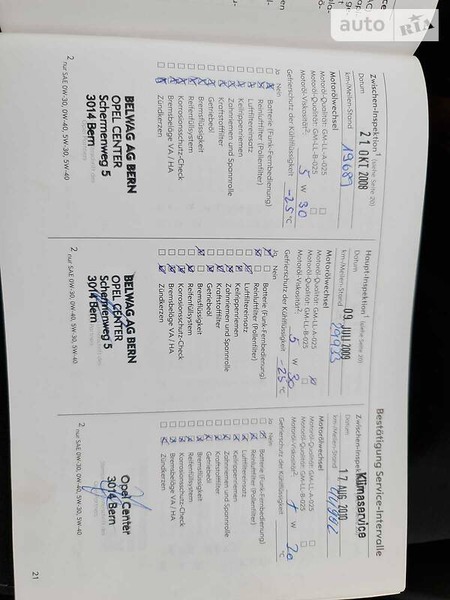 auto RIA
Bestätigung Service-Intervalle
Zwischen-Inspektion¹ (siehe Seite 20)
Datum 21 OKT 2008
km-/Meilen-Stand 19689
Motorölwechsel
Motoröl-Qualität: GM-LL-A-025
Motoröl-Qualität: GM-LL-B-025
Motoröl-Viskosität²: 5 W 30
Gefrierschutz der Kühlflüssigkeit -25 °C
Ja Nein
Batterie (Funk-Fernbedienung)
Reinluftfilter (Pollenfilter)
Luftfiltereinsatz
Keilrippenriemen
Zahnriemen und Spannrolle
Kraftstofffilter
Getriebeöl
Bremsflüssigkeit
Reifenfüllsystem
Korrosionsschutz-Check
Bremsbeläge VA / HA
Zündkerzen
BELWAG AG BERN
OPEL CENTER
Schermenweg 5
3014 Bern
² nur SAE 0W-30, 0W-40, 5W-30, 5W-40
Haupt-Inspektion¹ (siehe Seite 20)
Datum 09 JULI 2009
km-/Meilen-Stand
Motorölwechsel
Motoröl-Qualität: GM-LL-A-025
Motoröl-Qualität: GM-LL-B-025
Motoröl-Viskosität²: 5 W 30
Gefrierschutz der Kühlflüssigkeit -25 °C
Ja Nein
Batterie (Funk-Fernbedienung)
Reinluftfilter (Pollenfilter)
Luftfiltereinsatz
Keilrippenriemen
Zahnriemen und Spannrolle
Kraftstofffilter
Getriebeöl
Bremsflüssigkeit
Reifenfüllsystem
Korrosionsschutz-Check
Bremsbeläge VA / HA
Zündkerzen
BELWAG AG BERN
OPEL CENTER
Schermenweg 5
3014 Bern
² nur SAE 0W-30, 0W-40, 5W-30, 5W-40
Zwischen-Inspek
Klimaservice
Datum 17 AUG. 2010
km-/Meilen-Stand
Motorölwechsel
Motoröl-Qualität: GM-LL-A-025
Motoröl-Qualität: GM-LL-B-025
Motoröl-Viskosität²: W
Gefrierschutz der Kühlflüssigkeit °C
Ja Nein
Batterie (Funk-Fernbedienung)
Reinluftfilter (Pollenfilter)
Luftfiltereinsatz
Keilrippenriemen
Zahnriemen und Spannrolle
Kraftstofffilter
Getriebeöl
Bremsflüssigkeit
Reifenfüllsystem
Korrosionsschutz-Check
Bremsbeläge VA / HA
Zündkerzen
Opel Center
3014 Bern
² nur SAE 0W-30, 0W-40, 5W-30, 5W-40
21